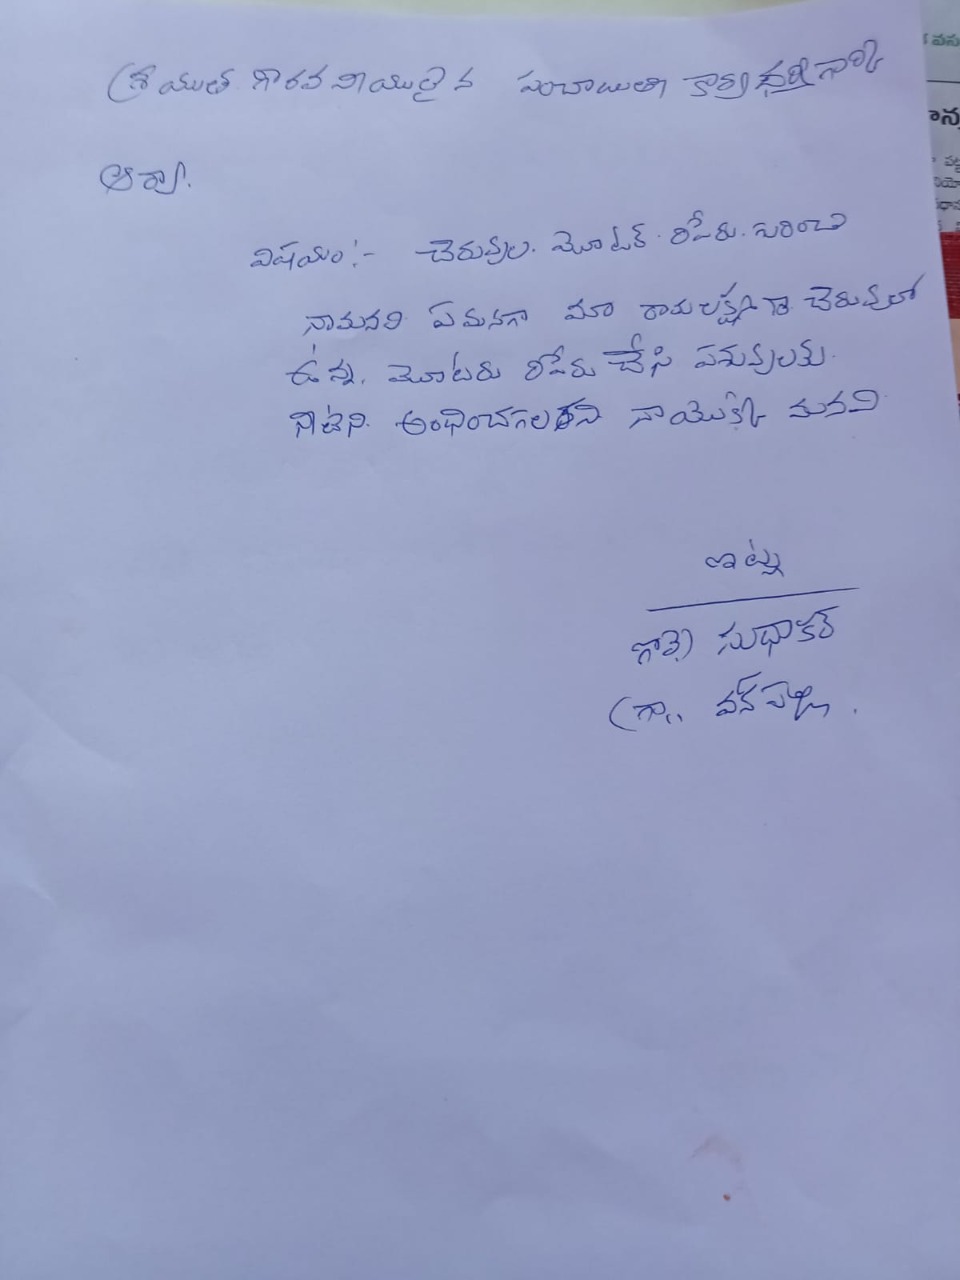 శ్రీయుత గౌరవనీయులైన పంచాయితీ కార్యదర్శి గార్కి
ఆర్యా.
విషయం:- చెరువుల. మోటర్. రిపేరు. గురించి
నామనవి ఏమనగా మా రామలక్ష్మణ చెరువులో
ఉన్న. మోటరు రిపేరు చేసి పశువులకు
నీటిని అంధించగలరని నాయొక్క మనవి
ఇట్లు
గొర్రె సుధాకర్
గ్రా,,